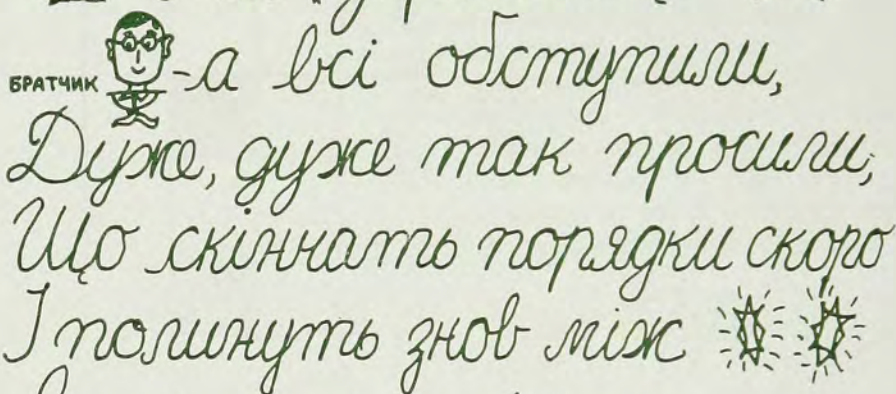 БРАТЧИК -а всі обступили,
Дуже, дуже так просили,
Що скінчать порядки скоро
І полинуть знов між